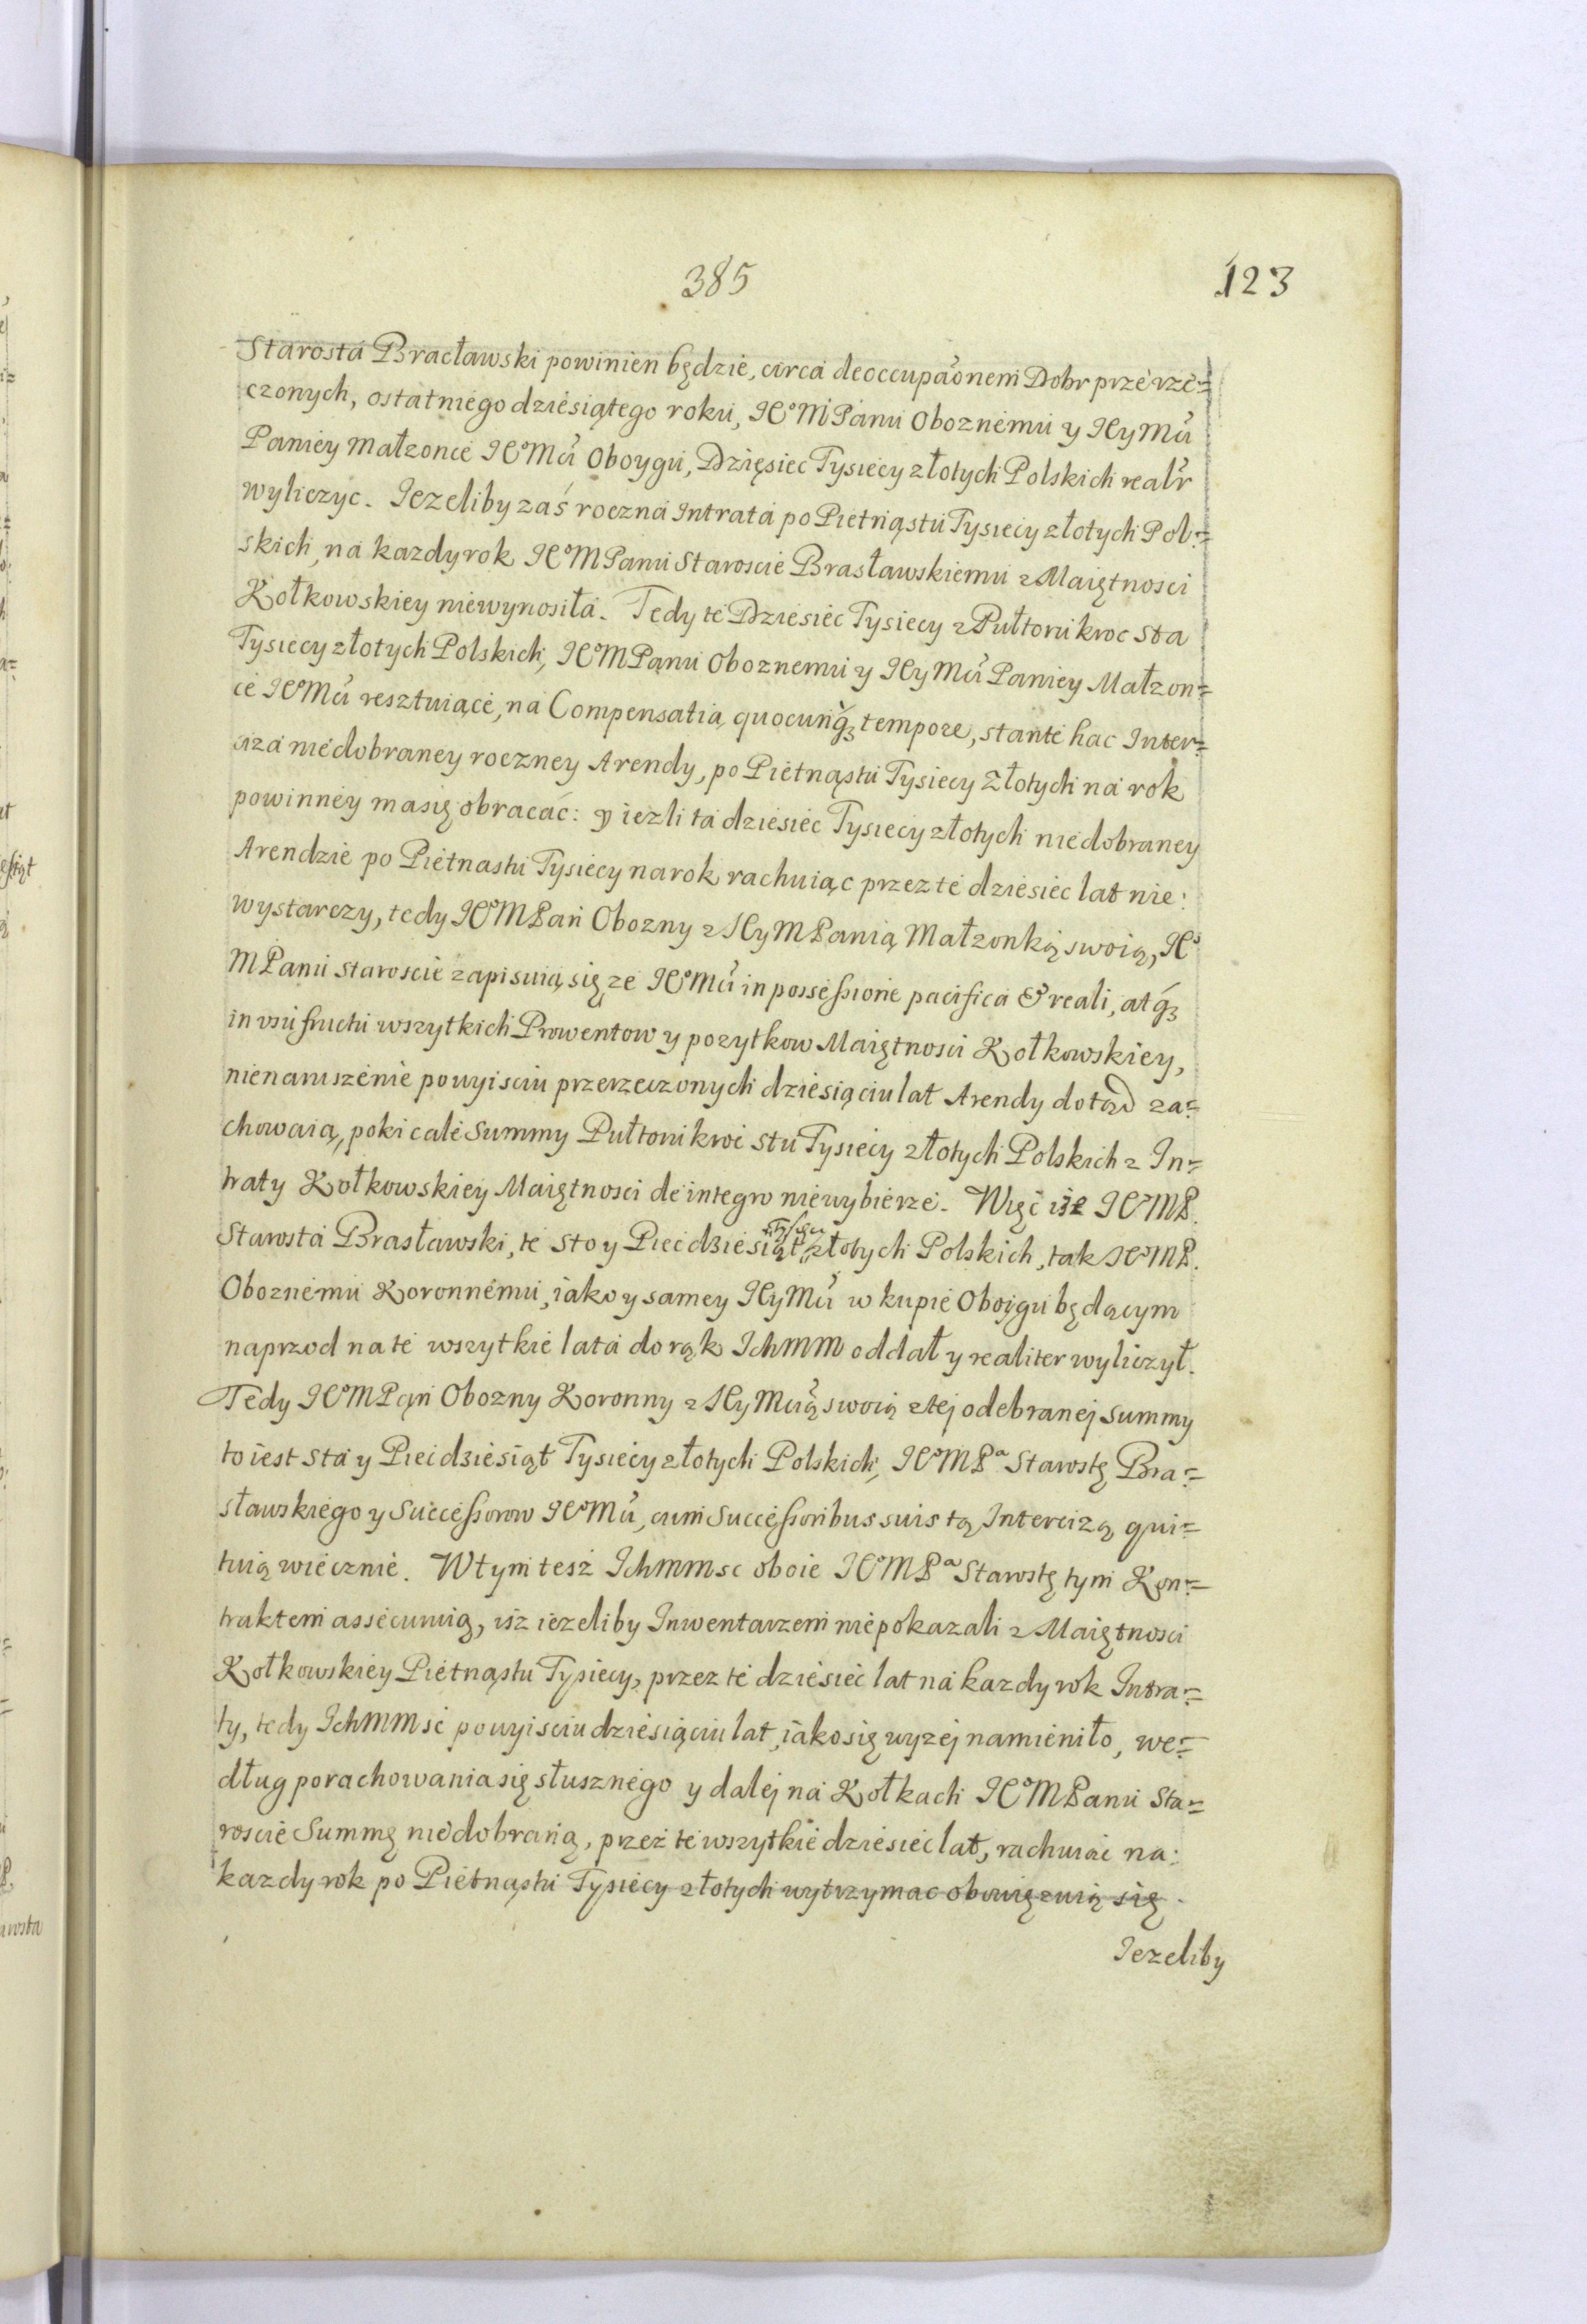 385
123
Starosta Bracławski powinien będzie, circa deoccupaõnem Dobr przerze=
czonych, ostatniego dziesiątego roku, JEoM Panu Oboznemu y JEyMci
Paniey małzonce JEoMci Oboygu, Dzięsiec Tysiecy złotych Polskich realr
wyliczyc. Jezeliby zaś roczna Intrata po Pietnąstu Tysiecy złotych Pol=
skich, na kazdy rok JEoM Panu Staroscie Brasławskiemu z Maiętnosci
Kołkowskiey niewynosiła. Tedy te Dziesiec Tysiecy z Pułtorukroc sta
Tysiecy złotych Polskich, JEoM Panu Oboznemu y JEyMci Paniey Małzon=
ce JEoMci resztuiące, na Compensatią quocunq3 tempore, stante hac Inter=
ciza niedobraney roczney Arendy, po Pietnąstu Tysiecy Złotych na rok
powinney ma się obracać: y iezli ta dziesiec Tysiecy złotych niedobraney
Arendzie po Pietnastu Tysiecy na rok rachuiąc przez te dziesiec lat nie:
wystarczy, tedy JEoM Pan Obozny z JEyM Panią Małzonką swoią, JEo
M Panu staroscie zapisuią się, ze JEoMci in possessione pacifica & reali, atq3
in usufructu wszytkich Prowentow y pozytkow Maiętnosci Kołkowskiey,
nienaruszenie po wyisciu przerzeczonych dziesiąciu lat Arendy dotąd za=
chowaią, poki cale Summy Pułtorukroc stu Tysiecy złotych Polskich z In=
traty Kołkowskiey Maiętnosci de integro niewybierze. Więc isz JEoMP.
Starosta Brasławski, te sto y Piecdziesiąt Tysięcy złotych Polskich, tak JEoMP.
Oboznemu Koronnemu, iako y samey JEyMci w kupie Oboygu będącym
naprzod na te wszytkie lata do rąk IchMM oddał y realiter wyliczył.
Tedy JEoM Pąn Obozny Koronny z JEyMcią swoią z tej odebranej summy
to iest sta y Piecdziesiąt Tysiecy złotych Polskich, JEoMPa Starostę Bra=
sławskiego y Successorow JEoMci, cum Successoribus suis tą Intercizą qui=
tuią wiecznie. W tym tesz Ichmmsc oboie JEoMPa Starostę tym Kon=
traktem assecuruią, isz iezeliby Inwentarzem niepokazali z Maiętnosci
Kołkowskiey Pietnąstu Tysiecy, przez te dziesiec lat na kazdy rok Intra=
ty, tedy Ichmmsc po wyisciu dziesiąciu lat, iako się wyzej namieniło, we=
dług porachowania się słusznego y dalej na Kołkach JEoM Panu Sta=
roscie Summę niedobraną, przez te wszytkie dziesiec lat, rachuiac na:
kazdy rok po Pietnąstu Tysiecy złotych wytrzymac obowięzuią się.
Jezeliby